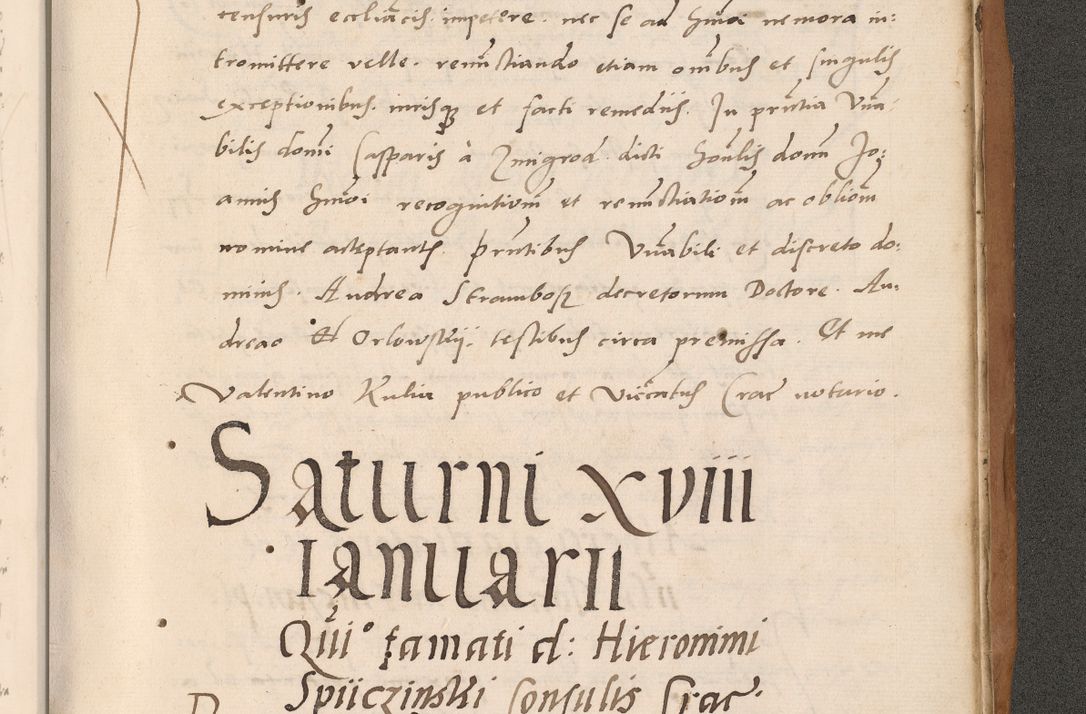 tensuris ecclīacis impetere. nec se ad hm̄oi nemora in:
tromittere velle. renūntiando etiam om̄ibus et singulis
exceptionibus. iurisq3 et facti remedijs. In pn̄tia Vn̄a:
bilis domī Casparis à Zmigrod dicti hon̄lis domī Jo:
annis hm̄oi recognitionē et renūntiationē ac oblīonē
nomine acceptantis. pn̄tibus Vn̄abili et discreto do:
minis. Andrea Strambors decretorum Doctore. An:
drea de Orlowskij. testibus circa premissa. Et me
Valentino Kulia publico et Vic̄atus Crac̄ notario.
Saturni xviii
Ianuarii
Qui° famati d: Hieronimi
Spiiczinski Consulis Crac̄.